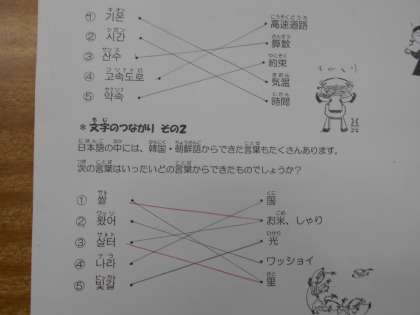 ① 기온　高速道路
② 시간　算数
③ 산수　約束
④ 고속도로　気温
⑤ 약속　時間
＊ 文字のつながり その2
日本語の中には、韓国・朝鮮語からできた言葉もたくさんあります。
次の言葉はいったいどの言葉からできたものでしょうか？
① 쌀　国
② 왔어　お米、しゃり
③ 살터　光
④ 나라　ワッショイ
⑤ 빛깔　里